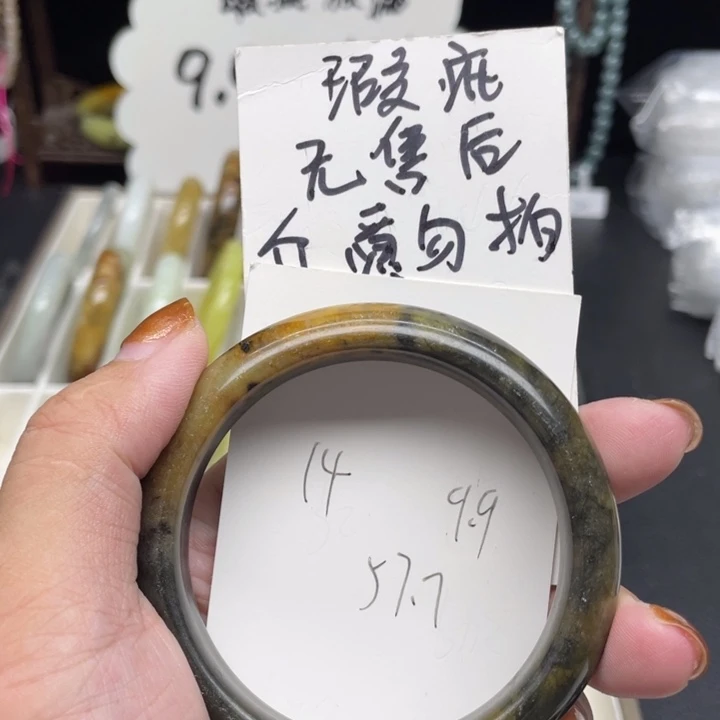 9.
瑕疵
无售后
介意勿拍
14
9.9
57.7